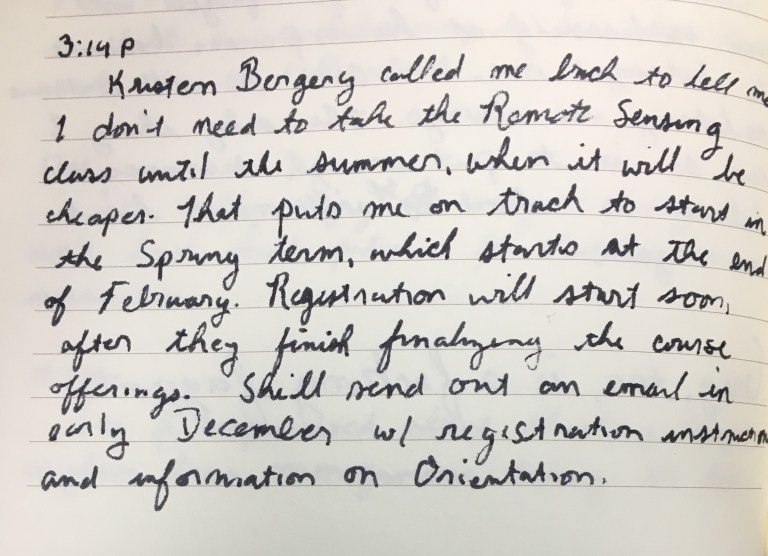 3:14 P
Kristen Bergery called me back to tell me
I don't need to take the Remote Sensing
class until the summer, when it will be
cheaper. That puts me on track to start in
the Spring term, which starts at the end
of February. Registration will start soon,
after they finish finalizing the course
offerings. She'll send out an email in
early December w/ registration
and information on Orientation.